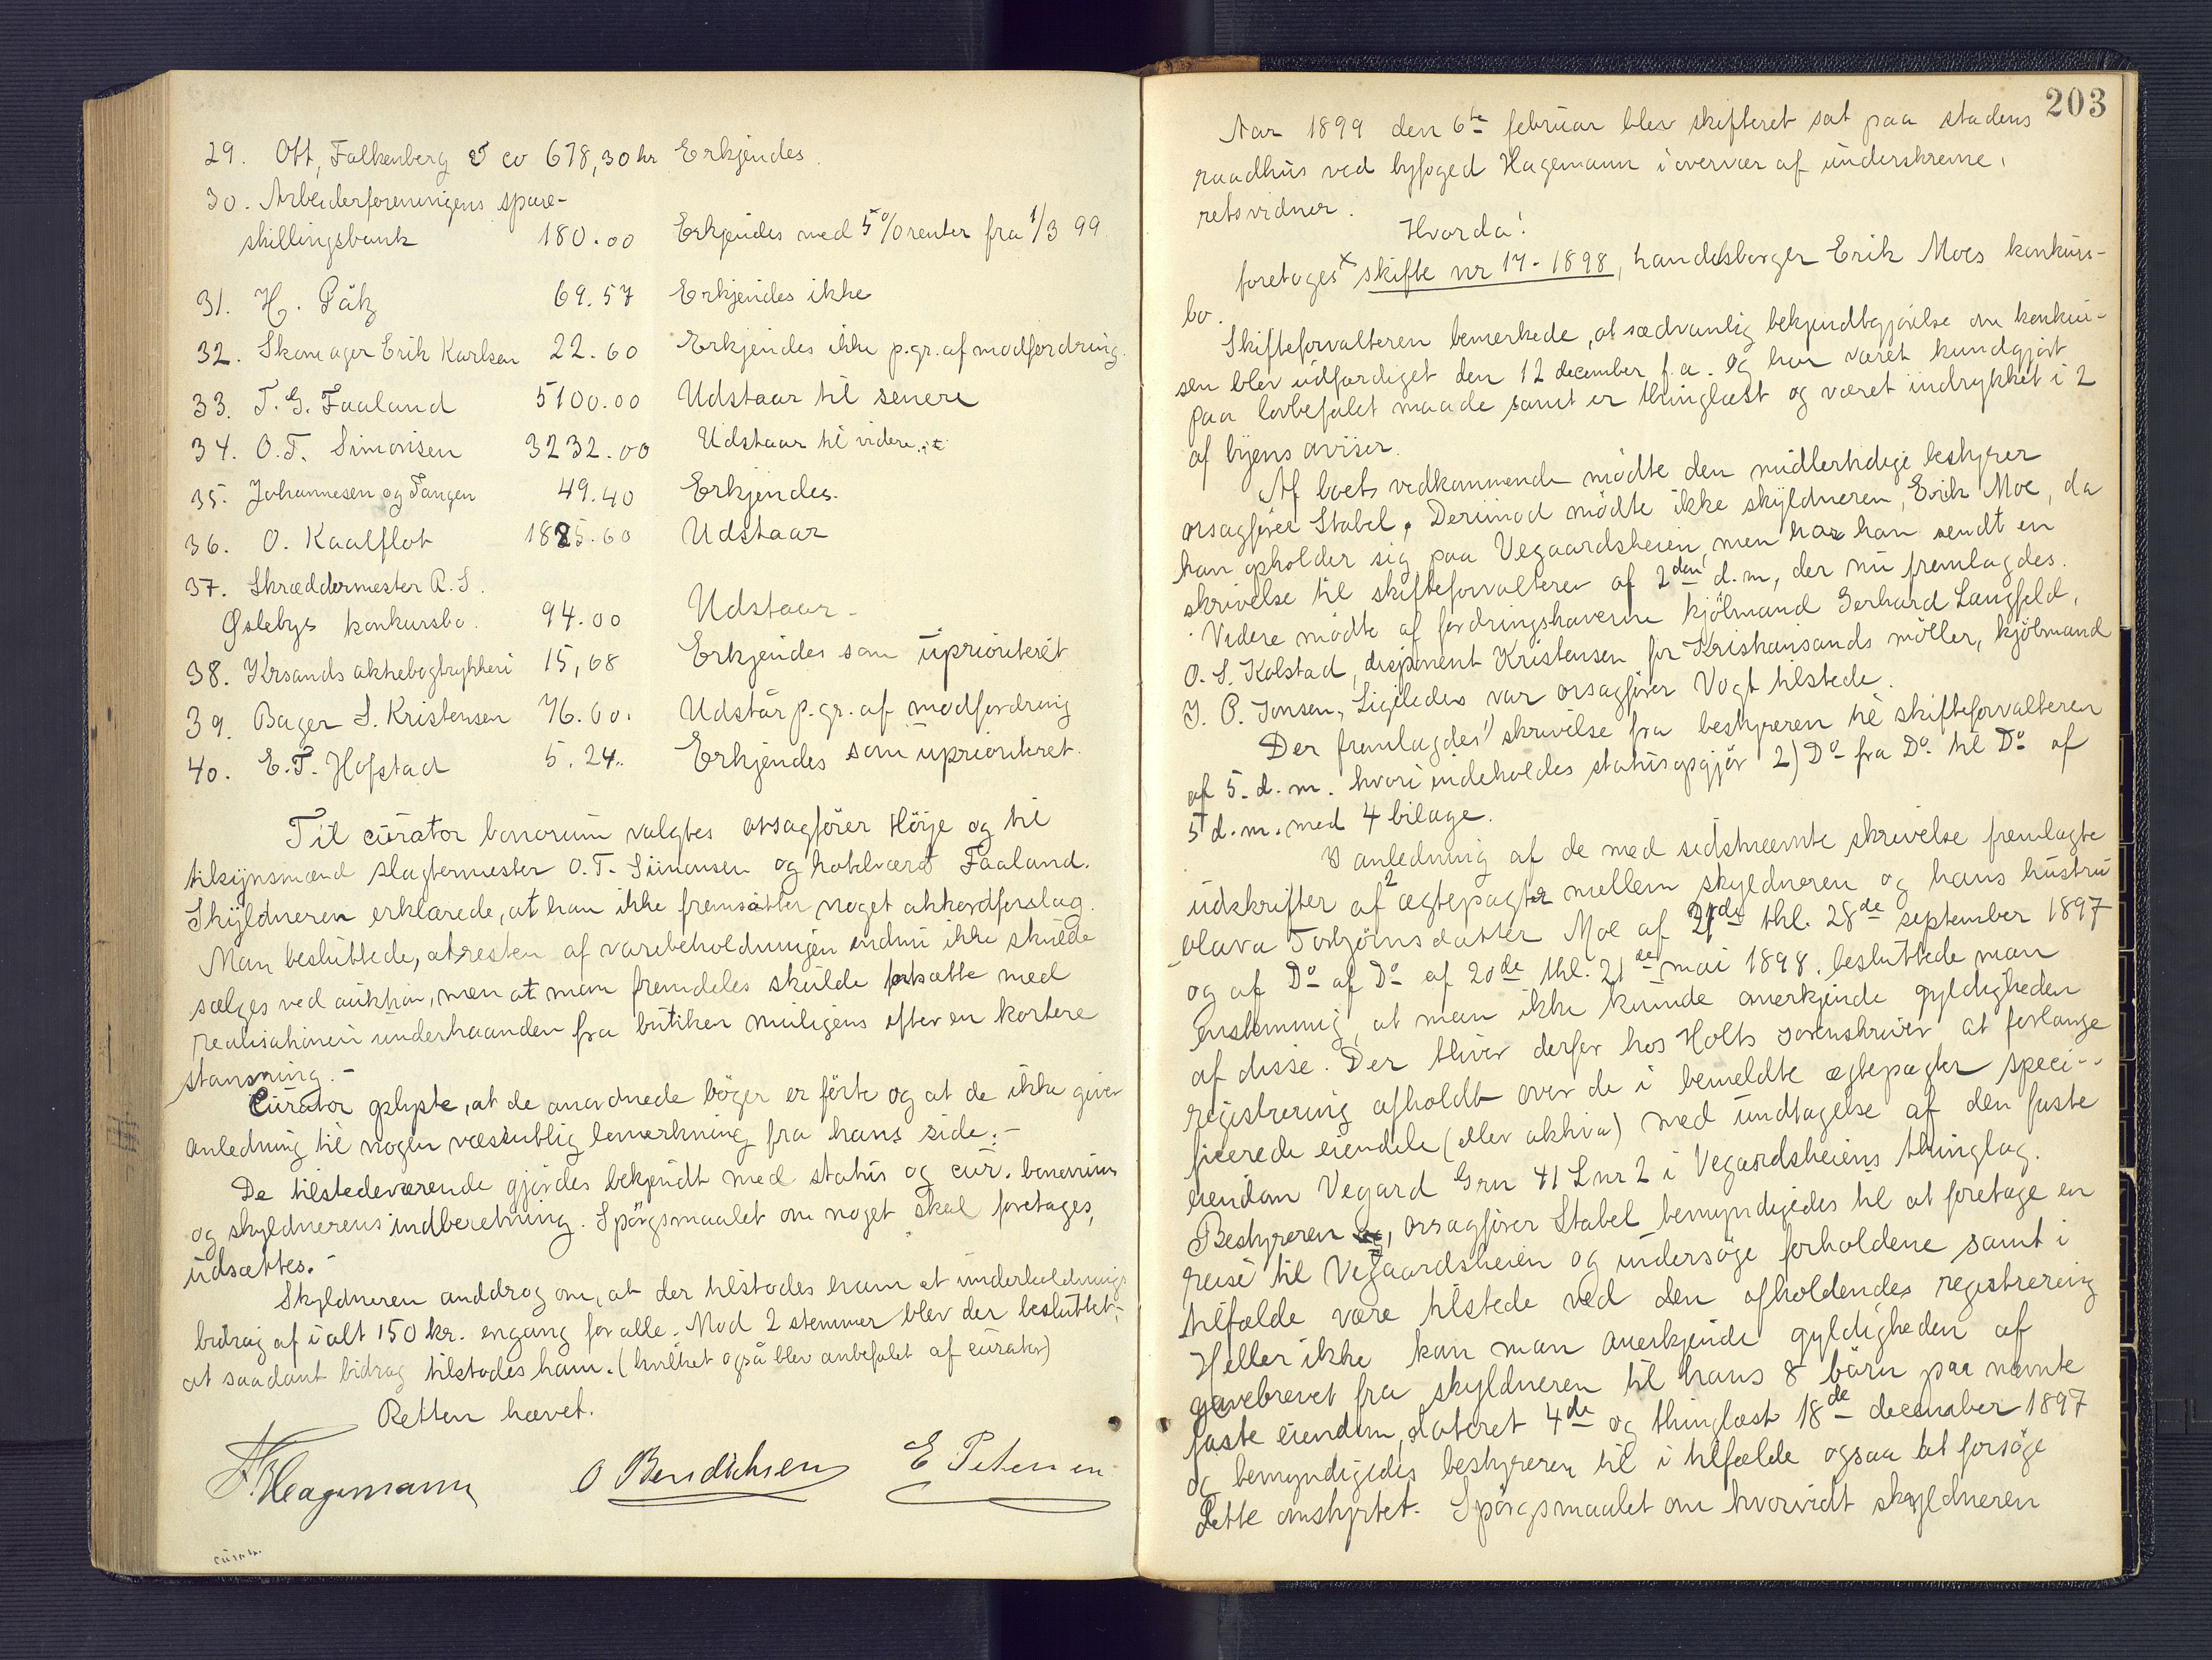 29. Ott, Falkenberg & co 678,30 kr Erkjendes.
30. Arbeiderforeningens spare-
skillingsbank 180.00 Erkjendes med 5% renter fra 1/3 99.
31. H. Pätz 69.57 Erkjendes ikke
32. Skomager Erik Karlsen 22.60 Erkjendes ikke p.gr. af modfordring.
33. T. G. Faaland 5100.00 Udstaar til senere
34. O. T. Simonsen 3232.00 Udstaar til videre
35. Johannesen og Tangen 49.40 Erkjendes.
36. O. Kaalflot 1825.60 Udstaar
37. Skræddermester R. S.
Øslebys konkursbo. 94.00 Udstaar.
38. Krsands aktiebogtrykkeri 15,68 Erkjendes som uprioriteret
39. Bager S. Kristensen 76.60. Udstår p. gr. af modfordring
40. E. T. Hofstad 5.24. Erkjendes som uprioriteret.
Til curator bonorum valgtes orsagfører Hörje og til
tilsynsmænd slagtermester O. T. Simonsen og hotelvært Faaland.
Skyldneren erklærede, at han ikke fremsätter noget akkordforslag.
Man besluttede, at resten af varebeholdningen endnu ikke skulde
sælges ved auktion, men at man fremdeles skulde fortsætte med
realisationen underhaanden fra butiken muligens efter en kortere
stansning.-
Curator oplyste, at de anordnede böger er förte og at de ikke giver
anledning til nogen væsentlig bemerkning fra hans side.-
De tilstedeværende gjördes bekjendt med status og cur. bonorums
og skyldnerens indberetning. Spörgsmaalet om noget skal foretages,
udsættes.-
Skyldneren anddrog om, at der tilstodes ham et underholdnings
bidrag af ialt 150 kr. engang for alle. Mod 2 stemmer blev der besluttet,
at saadant bidrag tilstodes ham. (hvilket også blev anbefalet af curator)
Retten hævet.
Hagemann O Bendichsen E Petersen
203
Aar 1899 den 6te februar blev skifteret sat paa stadens
raadhus ved byfoged Hagemann i overvær af underskrevne
retsvidner.
Hvorda!
foretoges x skifte nr 17-1898, handelsborger Erik Moes konkurs-
bo.
Skifteforvalteren bemerkede, at sædvanlig bekjendtgjörelse om konkur-
sen blev udfærdiget den 12 december f.a. og har været kundgjort
paa lovbefalet maade samt er thinglæst og været indrykket i 2
af byens aviser.
Af boets vedkommende mödte den midlertidige bestyrer
orsagfører Stabel. Derimod mödte ikke skyldneren, Erik Moe, da
han opholder sig paa Vegaardsheien, men har han sendt en
skrivelse til skifteforvalteren af 2den d.m, der nu fremlagdes.
Videre mödte af fordringshaverne kjöbmand Gerhard Langfeld,
O. S. Kolstad, disponent Kristensen for Kristiansands möller, kjöbmand
J. P. Jonsen, Ligeledes var orsagfører Vogt tilstede.
Der fremlagdes 1) skrivelse fra bestyreren til skifteforvalteren
af 5. d. m. hvori indeholdes statusopgjör 2) Do fra Do til Do af
5 d.m. med 4 bilage.
I anledning af de med sidstnævnte skrivelse fremlagte
udskrifter af 2 ægtepagter mellem skyldneren og hans hustru
Olava Torbjörnsdatter Moe af 21de thl. 28de september 1897
og af Do af Do af 20de thl. 21de mai 1898. besluttede man
enstemmig, at man ikke kunde anerkjende gyldigheden
af disse. Der bliver derfor hos Holts sorenskriver at forlange
registrering afholdt over de i bemeldte ægtepagter speci-
ficerede eiendele (eller aktiva) med undtagelse af den faste
eiendom Vegard Grn 41 Lnr 2 i Vegardsheiens thinglag.
Bestyreren, orsagfører Stabel bemyndigedes til at foretage en
reise til Vegaardsheien og undersöge forholdene samt i
tilfælde være tilstede ved den afholdendes registrering
Heller ikke kan man anerkjende gyldigheden af
gavebrevet fra skyldneren til hans 8 börn paa nævnte
faste eiendom, dateret 4de og thinglæst 18de december 1897
og bemyndigedes bestyreren til i tilfælde ogsaa at forsöge
dette omstyrtet. Spörgsmaalet om hvorvidt skyldneren